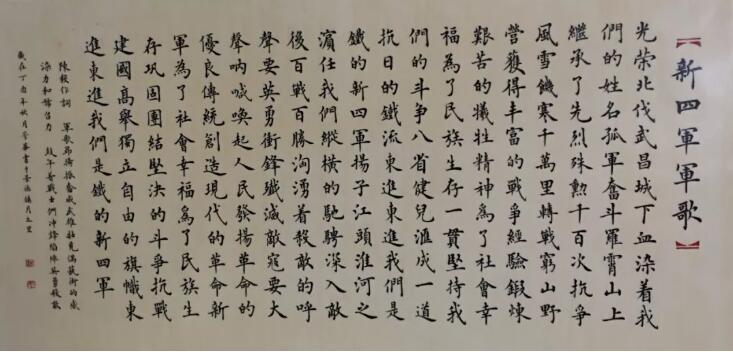 【新四軍軍歌】
光荣北伐武昌城下血染着我
們的姓名孤軍奮斗羅霄山上
繼承了先烈殊勲千百次抗争
風雪饑寒千萬里轉戰窮山野
营獲得丰富的戰争經驗鍛煉
艱苦的犧牲精神爲了社會幸
福為了民族生存一貫堅持我
們的斗争八省健兒滙成一道
抗日的鐵流東進東進我們是
鐵的新四軍揚子江頭淮河之
濱任我們縱横的馳騁深入敵
後百戰百勝洶湧着殺敵的呼
聲要英勇衝鋒殲滅敵寇要大
聲呐喊喚起人民發揚革命的
優良傳統創造現代的革命新
軍為了社會幸福爲了民族生
存巩固團結堅决的斗争抗戰
建國高舉獨立自由的旗幟東
進東進我們是鐵的新四軍
陳毅作詞 軍歌振奮威武雄壯充滿藝術的感
染力和號召力 戰士們冲鋒陷陣英勇殺敵
歲在丁酉年秋月